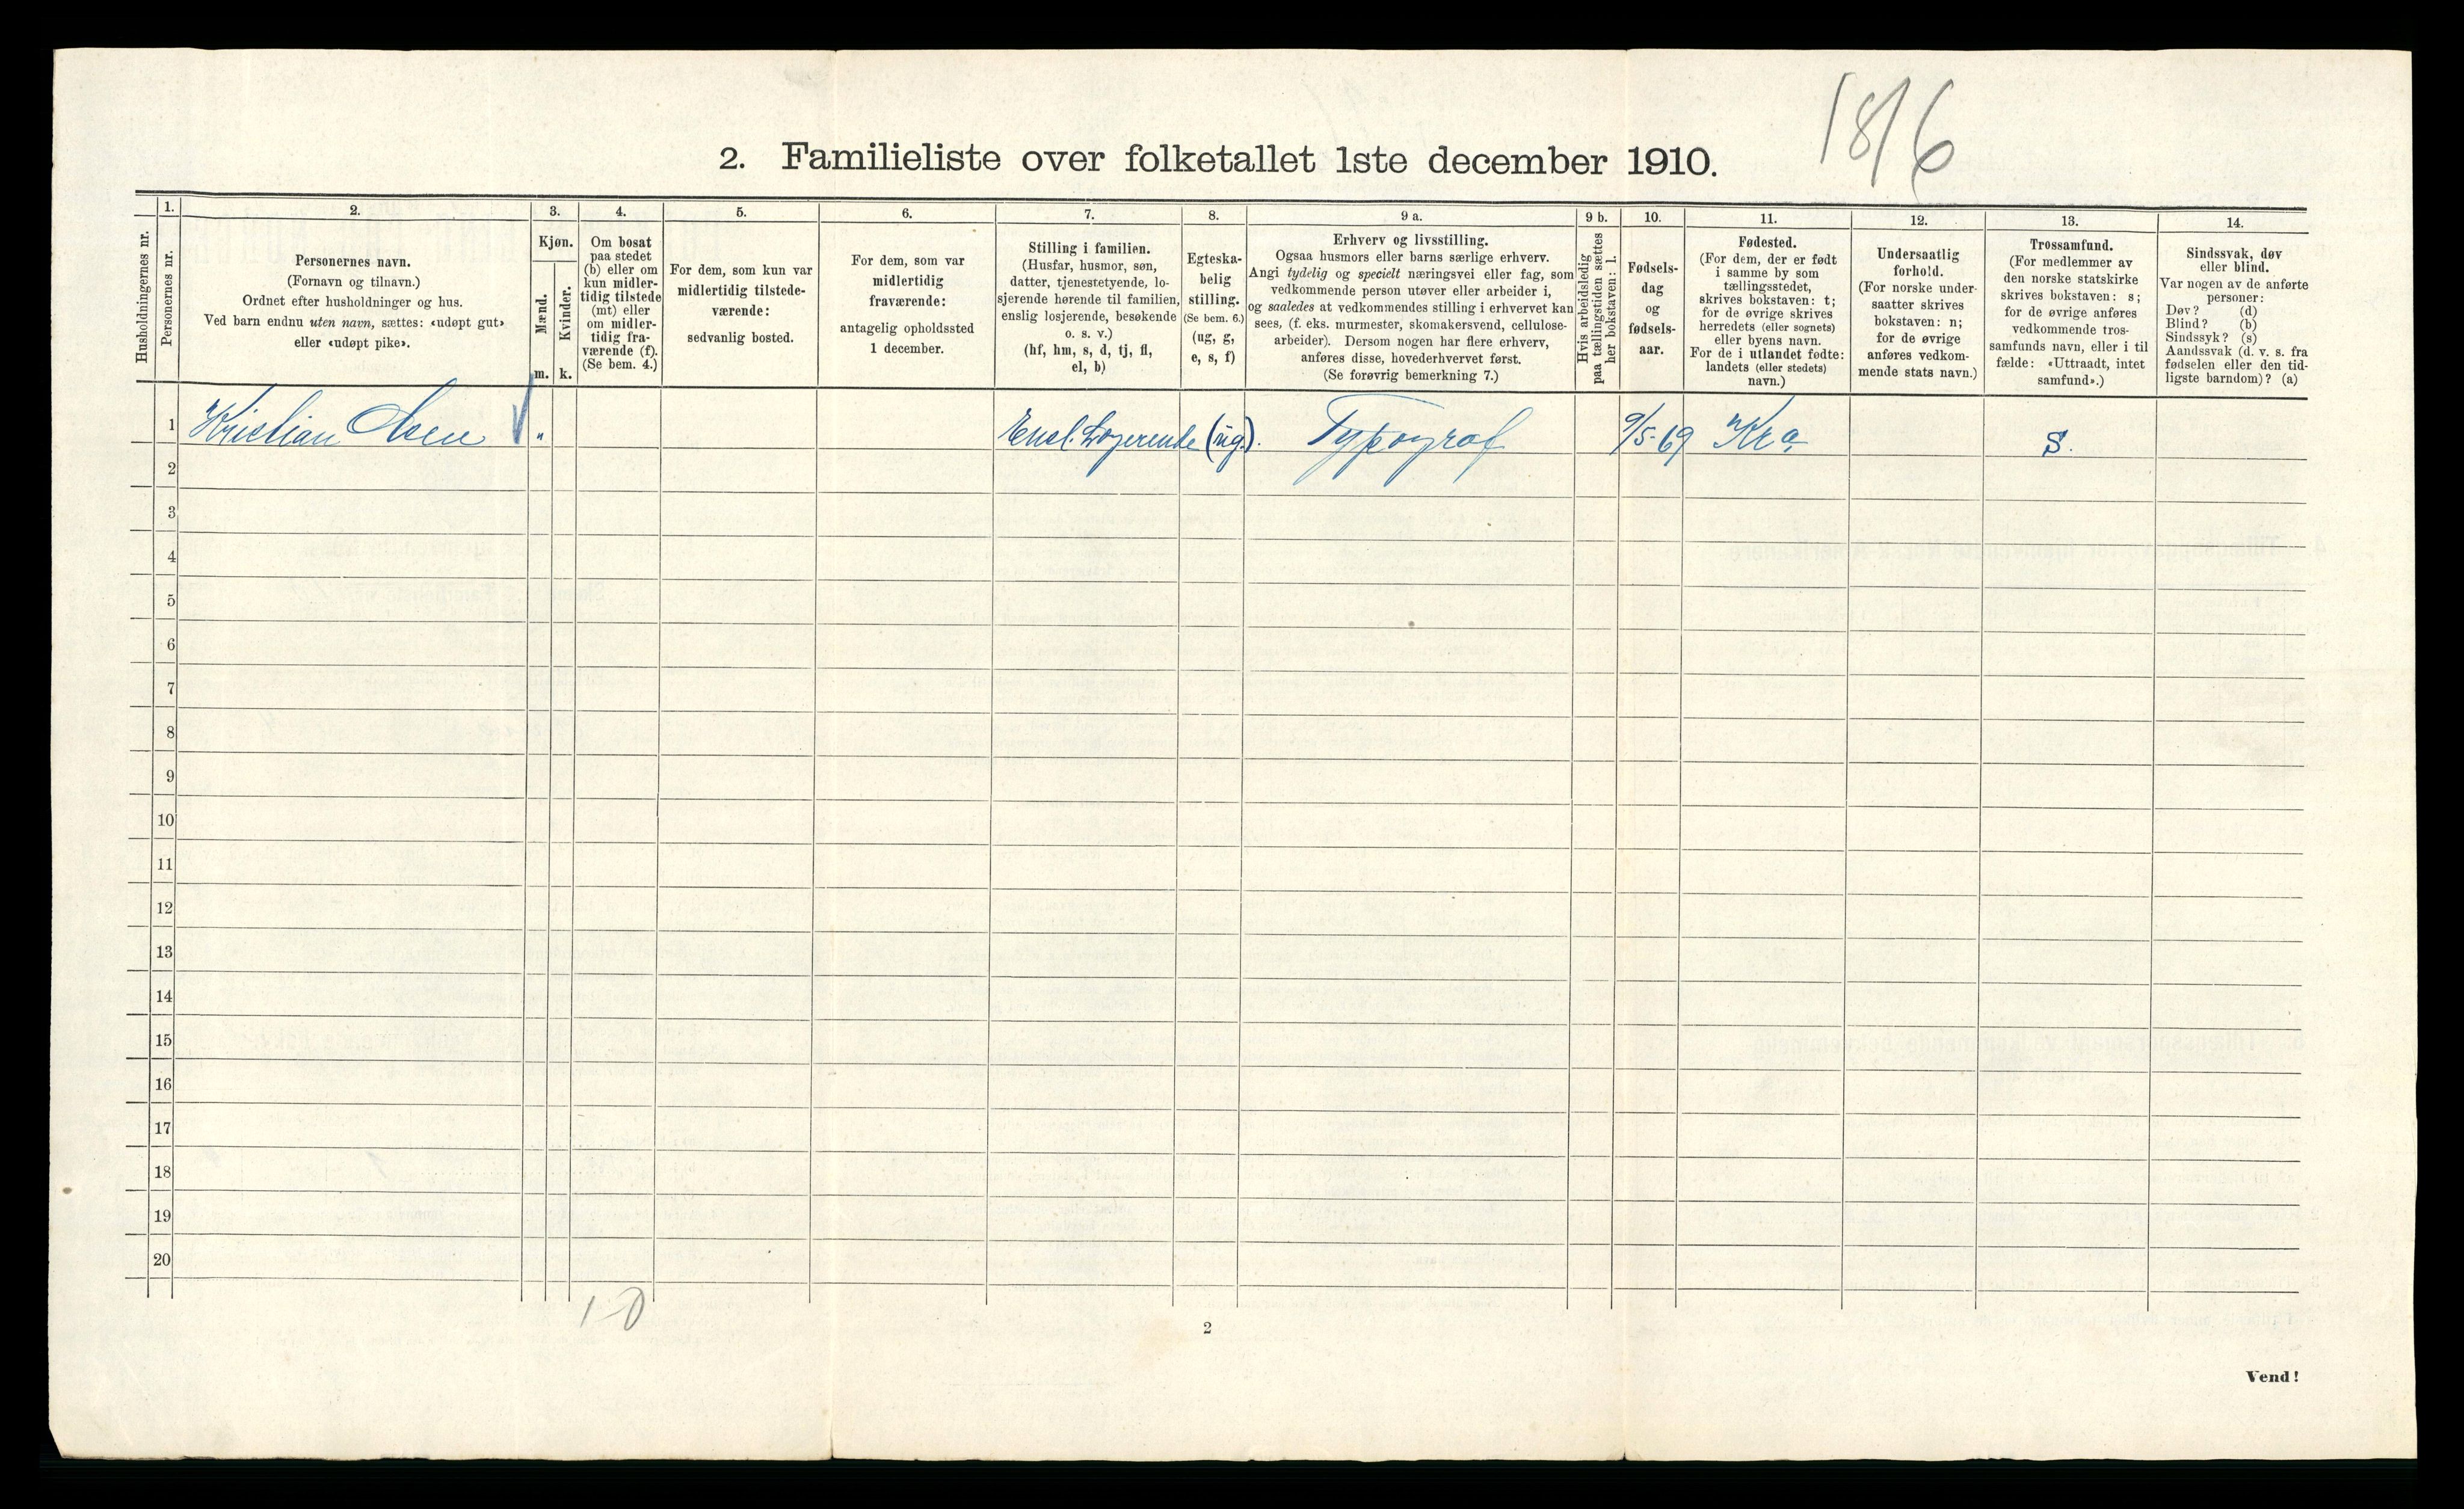 1816
2. Familieliste over folketallet 1ste december 1910.
Husholdningernes nr.
1.
Personernes nr.
2.
Personernes navn.
(Fornavn og tilnavn.)
Ordnet efter husholdninger og hus.
Ved barn endnu uten navn, sættes: «udøpt gut»
eller «udøpt pike».
3.
Kjøn.
Mænd.
Kvinder.
m.
k.
4.
Om bosat
paa stedet
(b) eller om
kun midler-
tidig tilstede
(mt) eller
om midler-
tidig fra-
værende (f).
(Se bem. 4.)
5.
For dem, som kun var
midlertidig tilstede-
værende:
sedvanlig bosted.
6.
For dem, som var
midlertidig
fraværende:
antagelig opholdssted
1 december.
7.
Stilling i familien.
(Husfar, husmor, søn,
datter, tjenestetyende, lo-
sjerende hørende til familien,
enslig losjerende, besøkende
o. s. v.)
(hf, hm, s, d, tj, fl,
el, b)
8.
Egteska-
belig
stilling.
(Se bem. 6.)
(ug, g,
e, s, f)
9 a.
Erhverv og livsstilling.
Ogsaa husmors eller barns særlige erhverv.
Angi tydelig og specielt næringsvei eller fag, som
vedkommende person utøver eller arbeider i,
og saaledes at vedkommendes stilling i erhvervet kan
sees, (f. eks. murmester, skomakersvend, cellulose-
arbeider). Dersom nogen har flere erhverv,
anføres disse, hovederhvervet først.
(Se forøvrig bemerkning 7.)
9 b.
Hvis arbeidsledig
paa tællingstiden sættes
her bokstaven: l.
10.
Fødsels-
dag
og
fødsels-
aar.
11.
Fødested.
(For dem, der er født
i samme by som
tællingsstedet,
skrives bokstaven: t;
for de øvrige skrives
herredets (eller sognets)
eller byens navn.
For de i utlandet fødte:
landets (eller stedets)
navn.)
12.
Undersaatlig
forhold.
(For norske under-
saatter skrives
bokstaven: n;
for de øvrige
anføres vedkom-
mende stats navn.)
13.
Trossamfund.
(For medlemmer av
den norske statskirke
skrives bokstaven: s;
for de øvrige anføres
vedkommende tros-
samfunds navn, eller i til
fælde: «Uttraadt, intet
samfund».)
14.
Sindssvak, døv
eller blind.
Var nogen av de anførte
personer:
Døv? (d)
Blind? (b)
Sindssyk? (s)
Aandssvak (d. v. s. fra
fødselen eller den tid-
ligste barndom)? (a)
1 Kristian Olsen " Ensl. Logerende (ug). Typograf 9/5-69 Kra. S.
2
3
4
5
6
7
8
9
10
11
12
13
14
15
16
17
18
19
20
1-0
2
Vend!